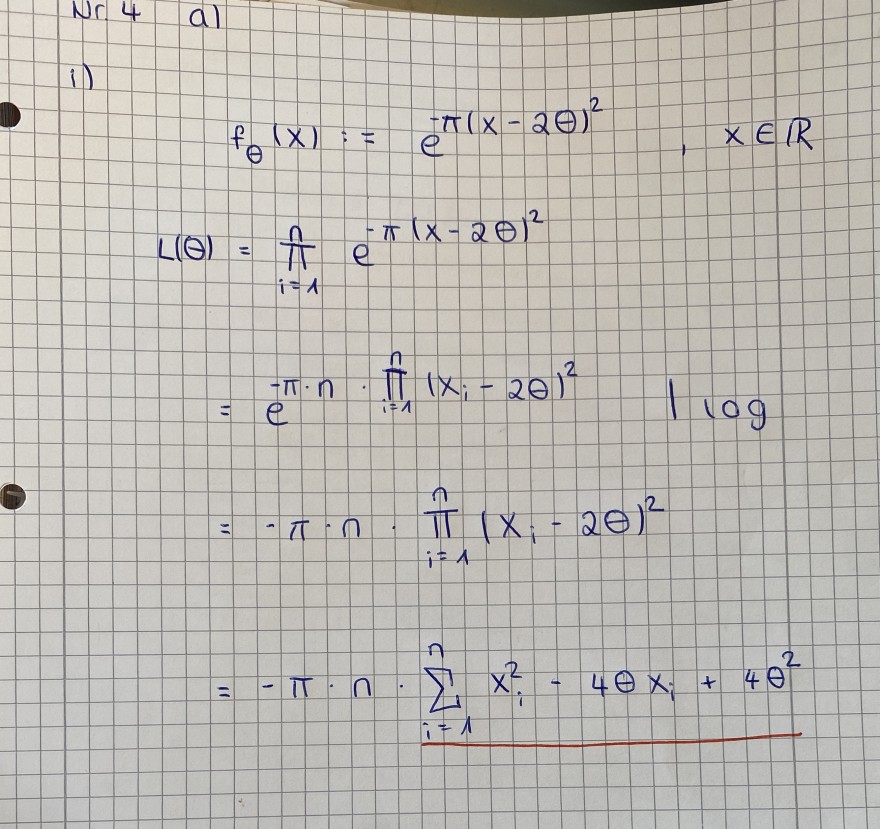 Nr. 4 a)
i)
f_θ(x) := e^{-π(x - 2θ)^2} , x ∈ ℝ
L(θ) = ∏_{i=1}^{n} e^{-π(x - 2θ)^2}
= e^{-π·n} · ∏_{i=1}^{n} (x_i - 2θ)^2 | log
= -π · n · ∏_{i=1}^{n} (x_i - 2θ)^2
= -π · n · ∑_{i=1}^{n} x_i^2 - 4θx_i + 4θ^2